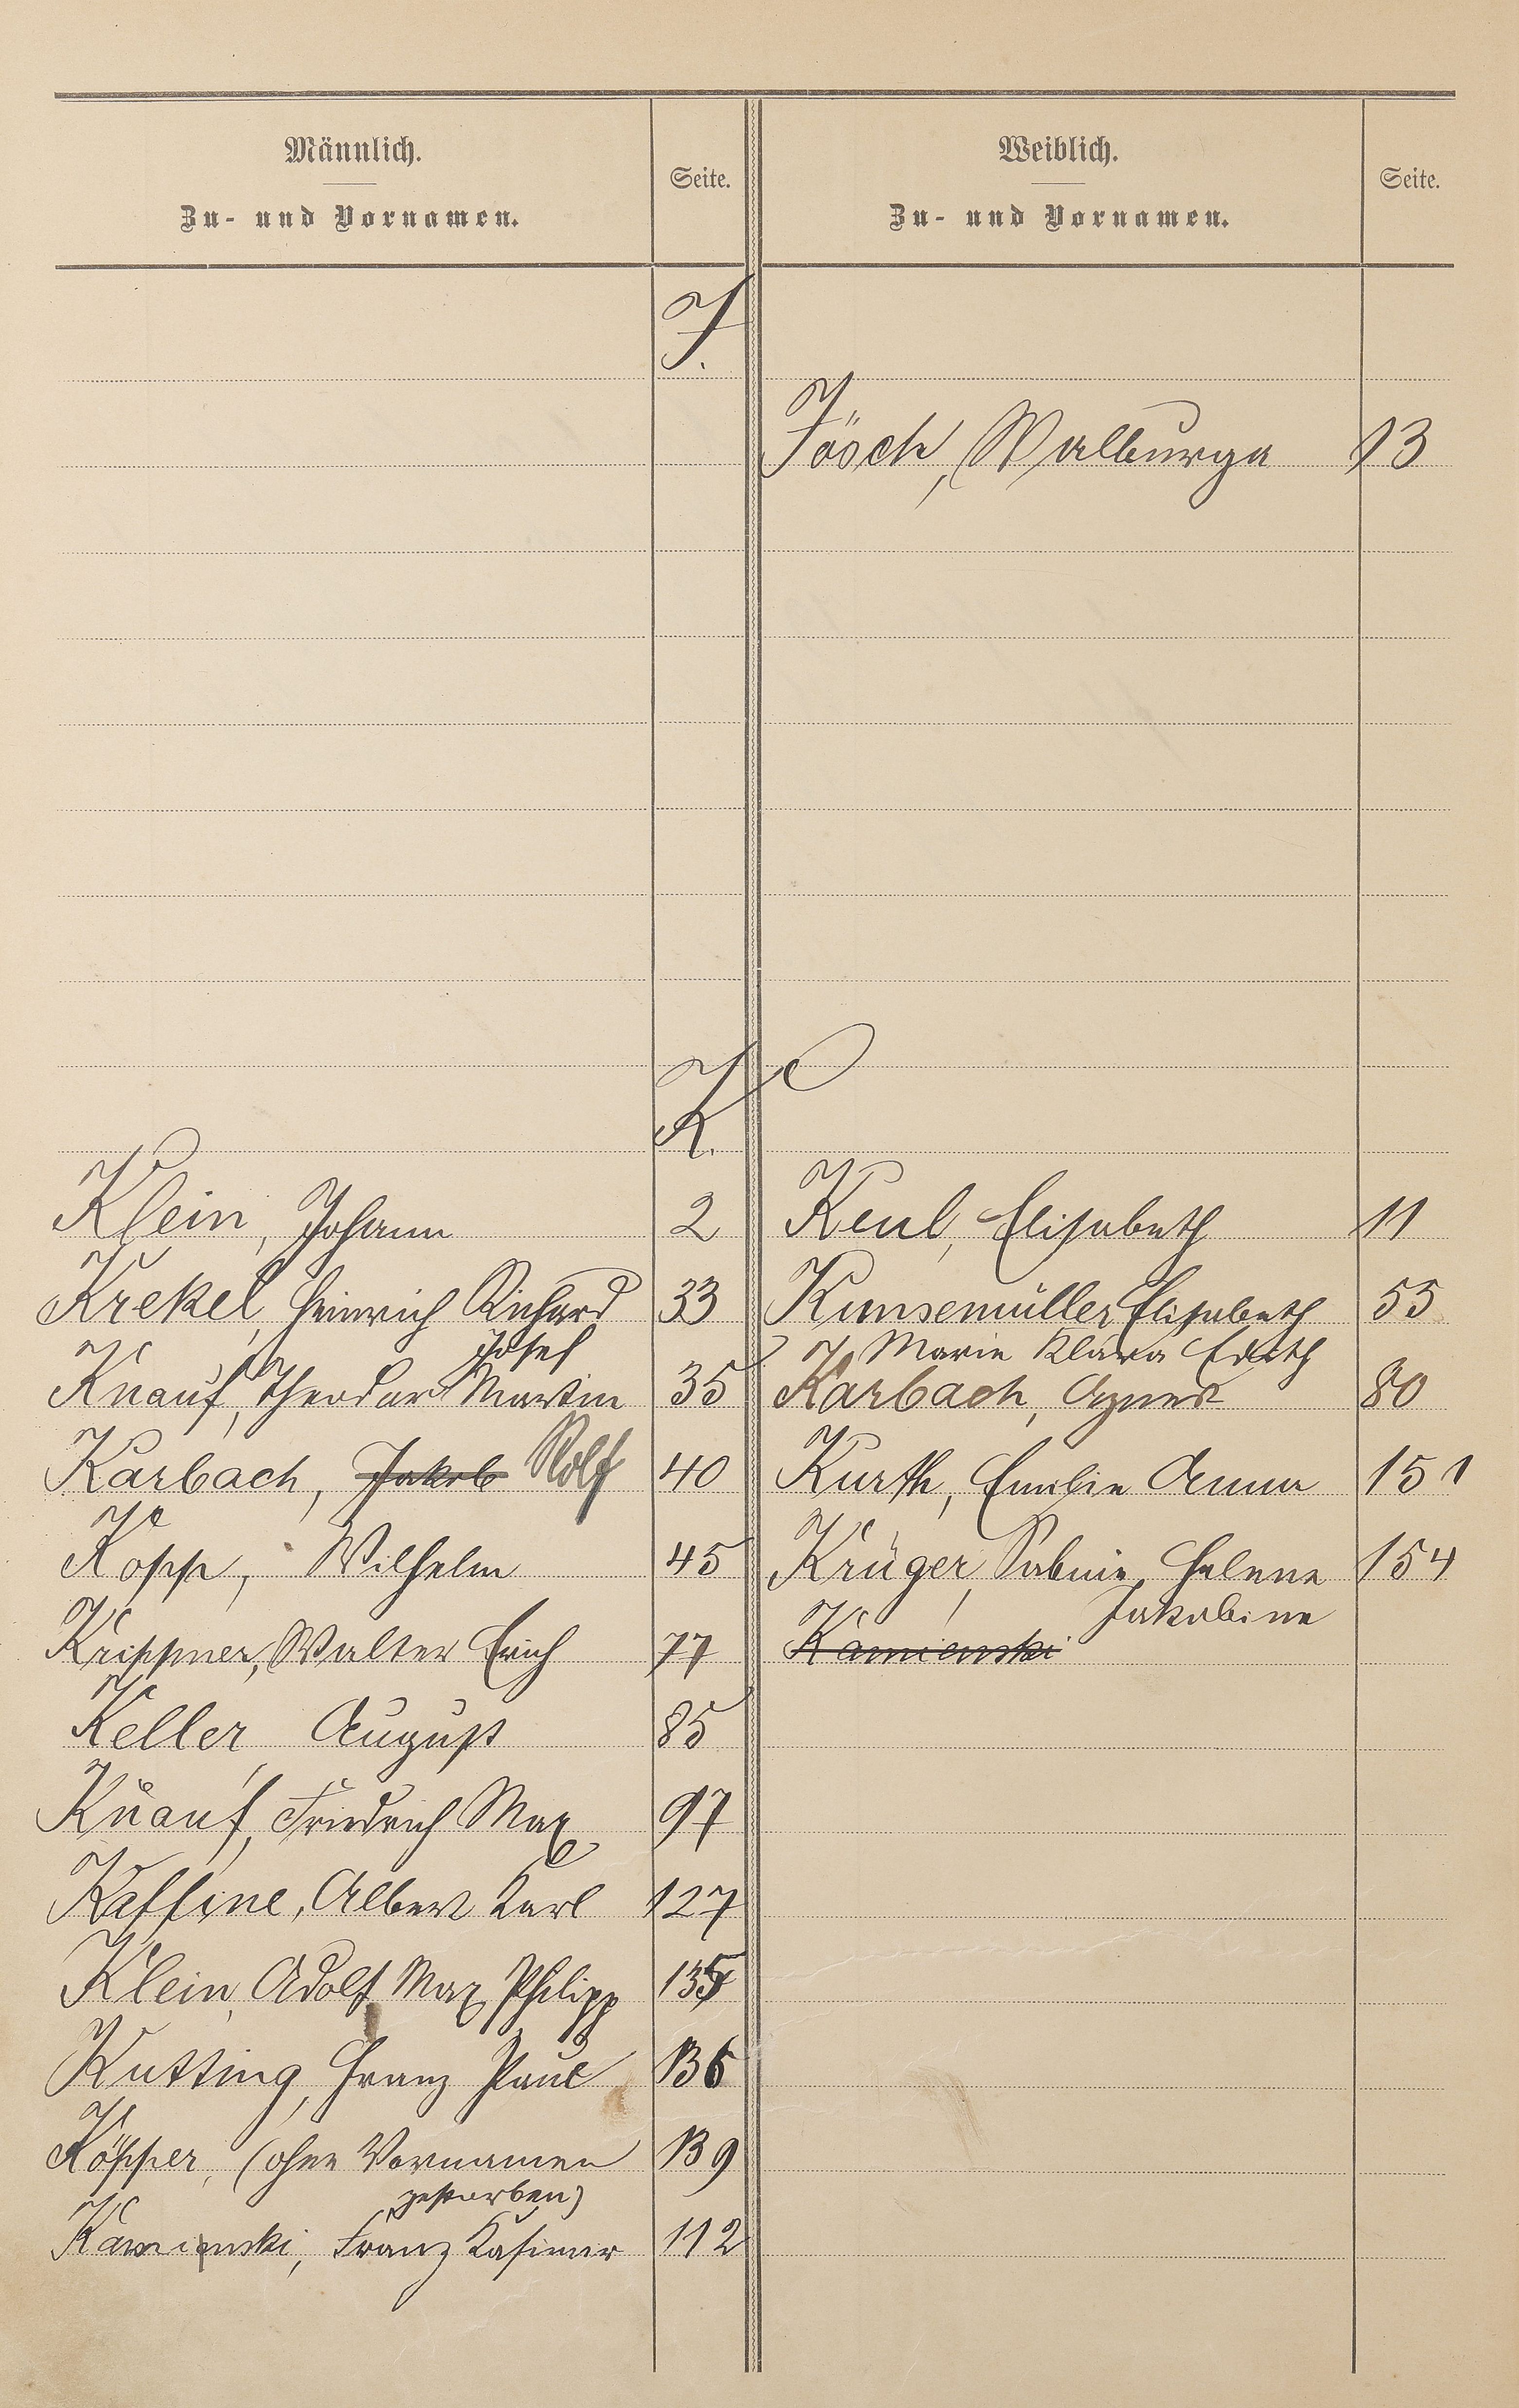 Männlich.
Zu- und Vornamen.
Seite.
Weiblich.
Zu- und Vornamen.
Seite.
J.
Jösch, Walburga 13
K.
Klein, Johann 2
Keul, Elisabeth 11
Krekel, Heinrich Richard 33
Kunsemüller Elisabeth 55
Josef
Marie Klara Edith
Knauf, Theodor Martin 35
Karbach, Agnes 80
Karbach, Jakob Rolf 40
Kurth, Emilie Anna 151
Kopp, Wilhelm 45
Krüger, Sabine Helene 154
Jakobine
Krippner, Walter Erich 77
Kamienski
Keller, August 85
Knauf, Friedrich Max 97
Kaffine, Albert Karl 127
Klein, Adolf Max Philipp 135
Kutting, Franz Paul 136
Köpper, (ohne Vornamen 139
gestorben)
Kamienski, Franz Kasimir 112